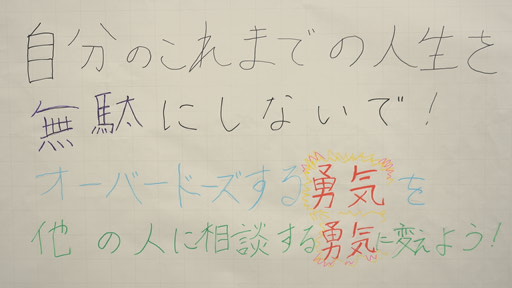 自分のこれまでの人生を
無駄にしないで!
オーバードーズする勇気を
他の人に相談する勇気に変えよう!